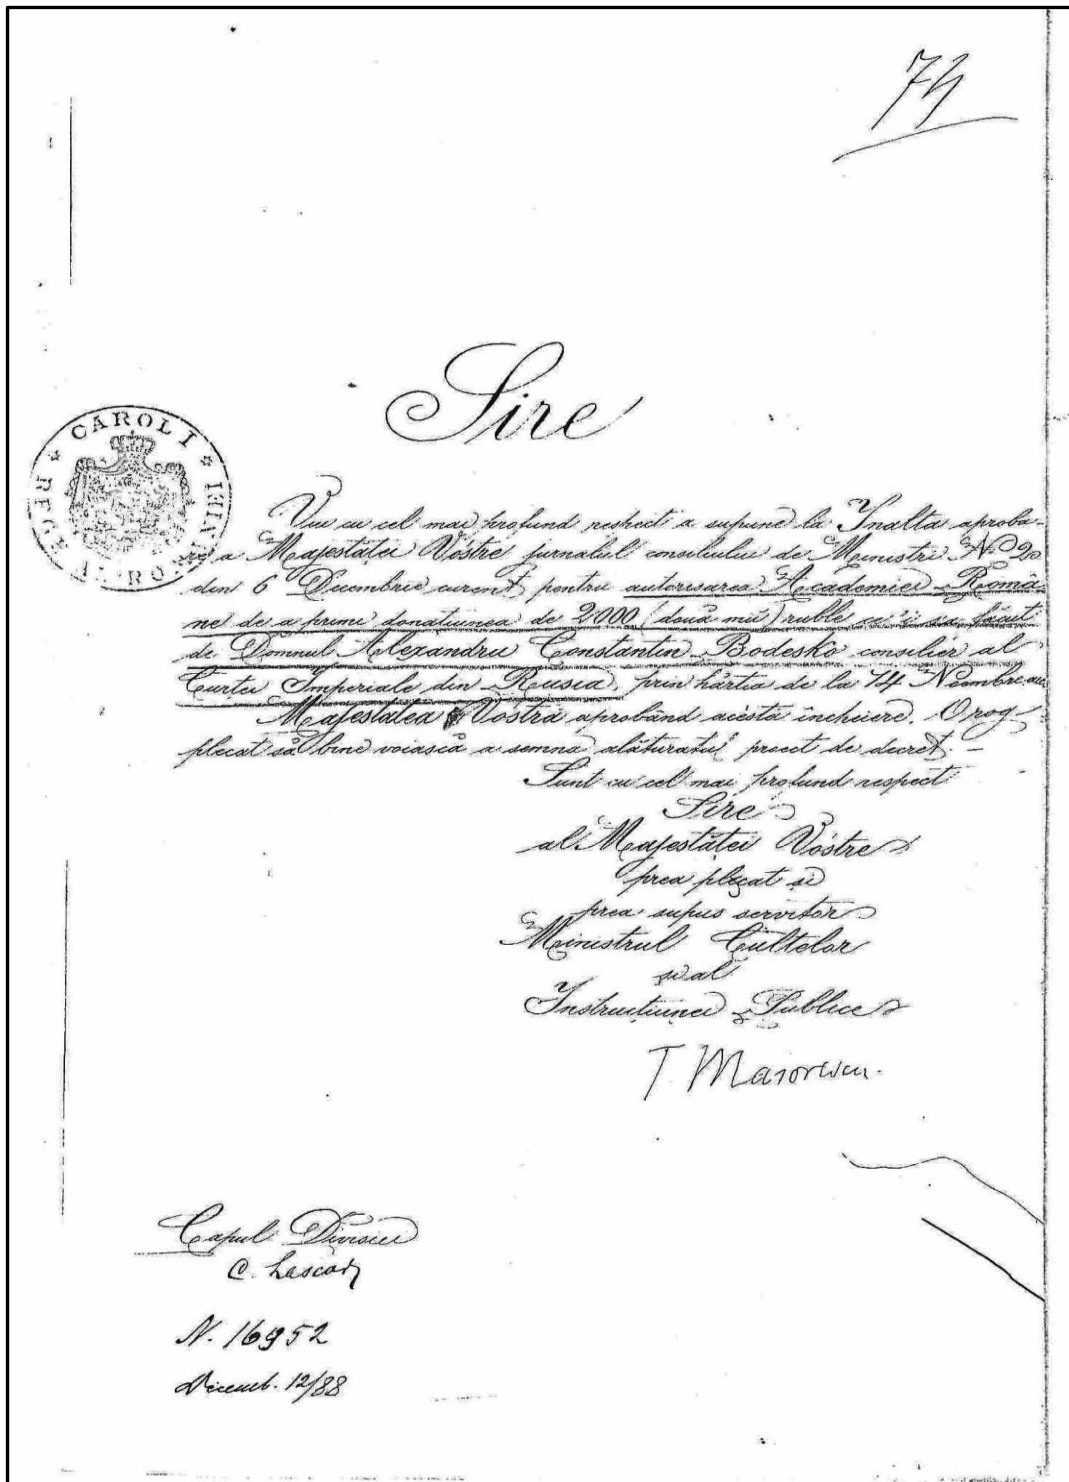 74
Sire
CAROL I REGE AL ROMANIEI
Viu cu cel mai profund respect a supune la Inalta aproba-
re a Majestatei Vóstre jurnalul consiliului de Ministri No 2
din 6 Decembrie curent, pentru autorisarea Academiei Româ-
ne de a primi donatiunea de 2000 (două mii) ruble ce 'i sa făcut
de Domnul Alexandru Constantin Bodesko consilier al
Curtei Imperiale din Rusia, prin hârtia de la 14 Noembre
Majestatea Vostră aprobând acésta încheiere, O rog
plecat să bine voiască a semna alăturatul proect de decret. –
Sunt cu cel mai profund respect
Sire
al Majestăței Vóstre
prea plecat și
prea supus servitor
Ministrul Cultelor
și al
Instrucțiunei Publice
T. Maiorescu.
Capul Divisiei
C. Lascar
N. 16952
Decemb. 12/88